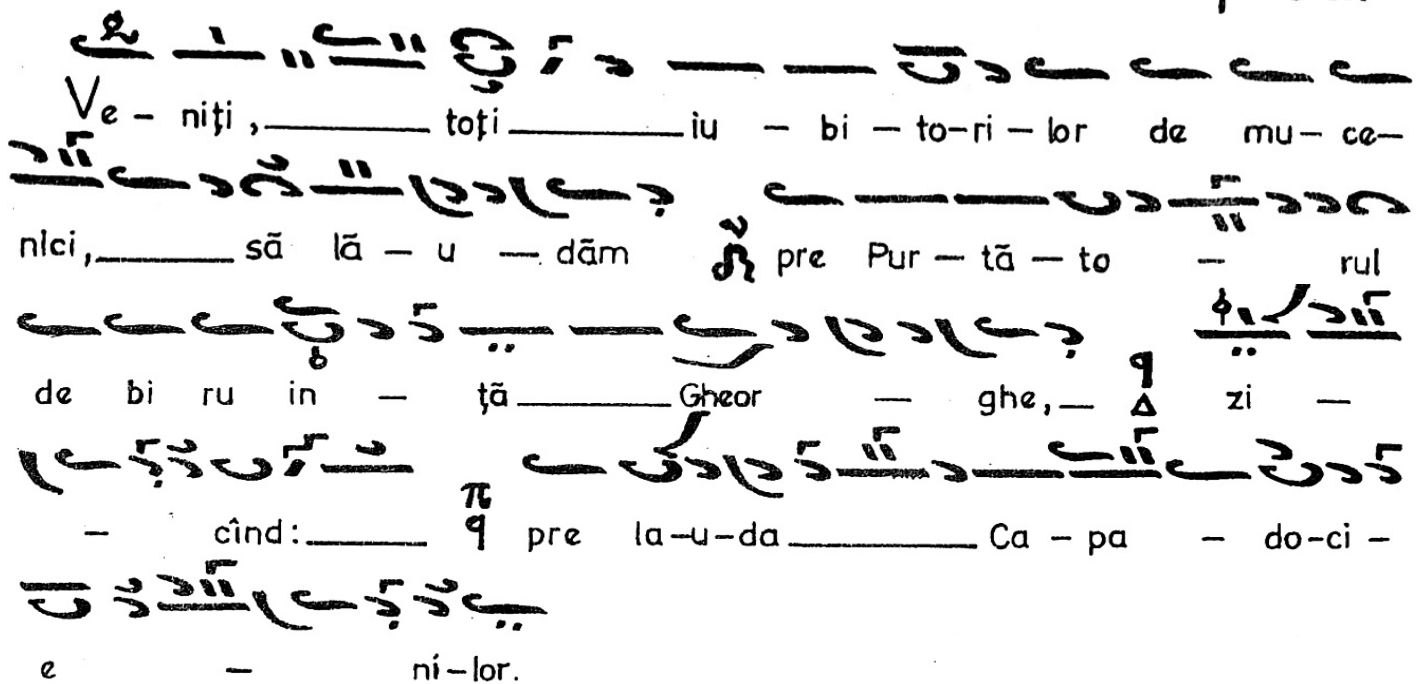 Ve – niți, ______ toți ______ iu – bi – to–ri – lor de mu – ce–
nici, ______ să lă – u – dăm pre Pur – tă – to – rul
de bi ru in – ță ______ Gheor – ghe, – Δ zi –
– cînd: ______ π q pre la–u–da ______ Ca – pa – do–ci –
e – ni–lor.